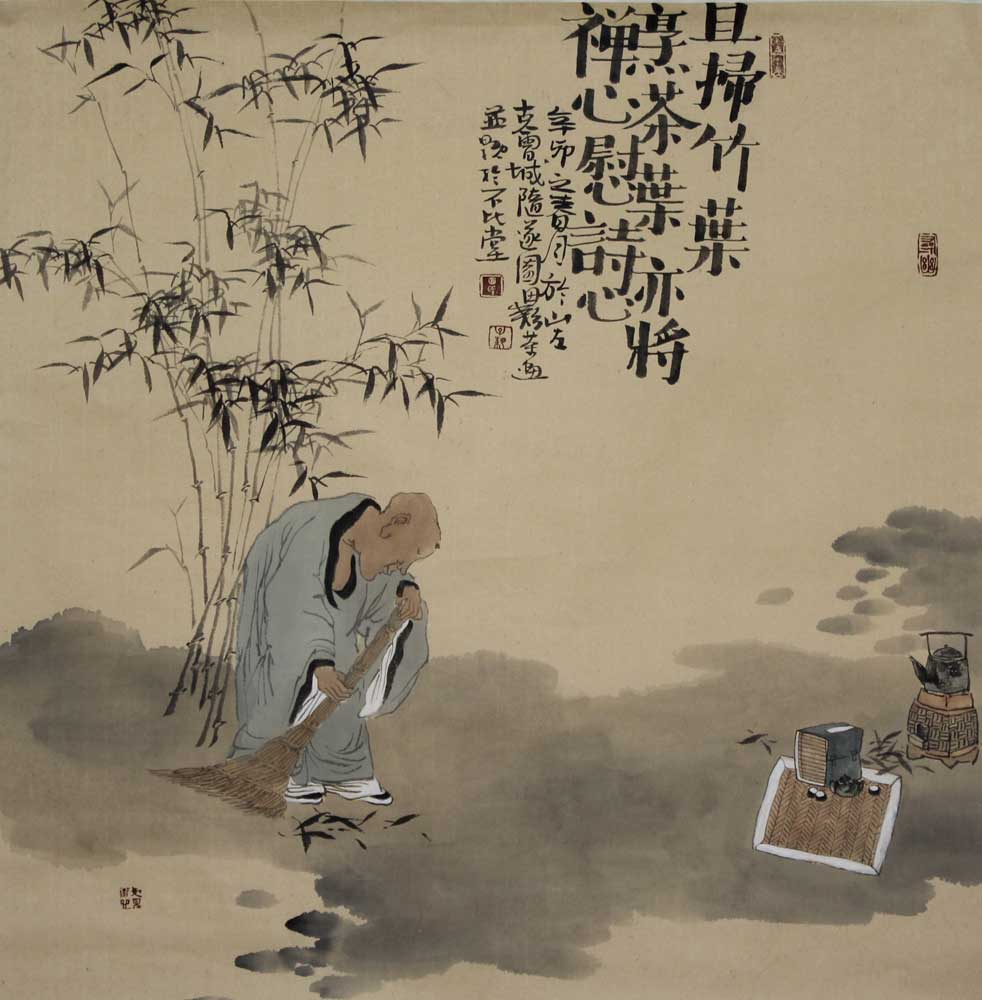 且掃竹葉
烹茶葉亦將
禪心慰詩心
辛卯之春月於山左
曹城隨遂園田
並題於不比堂